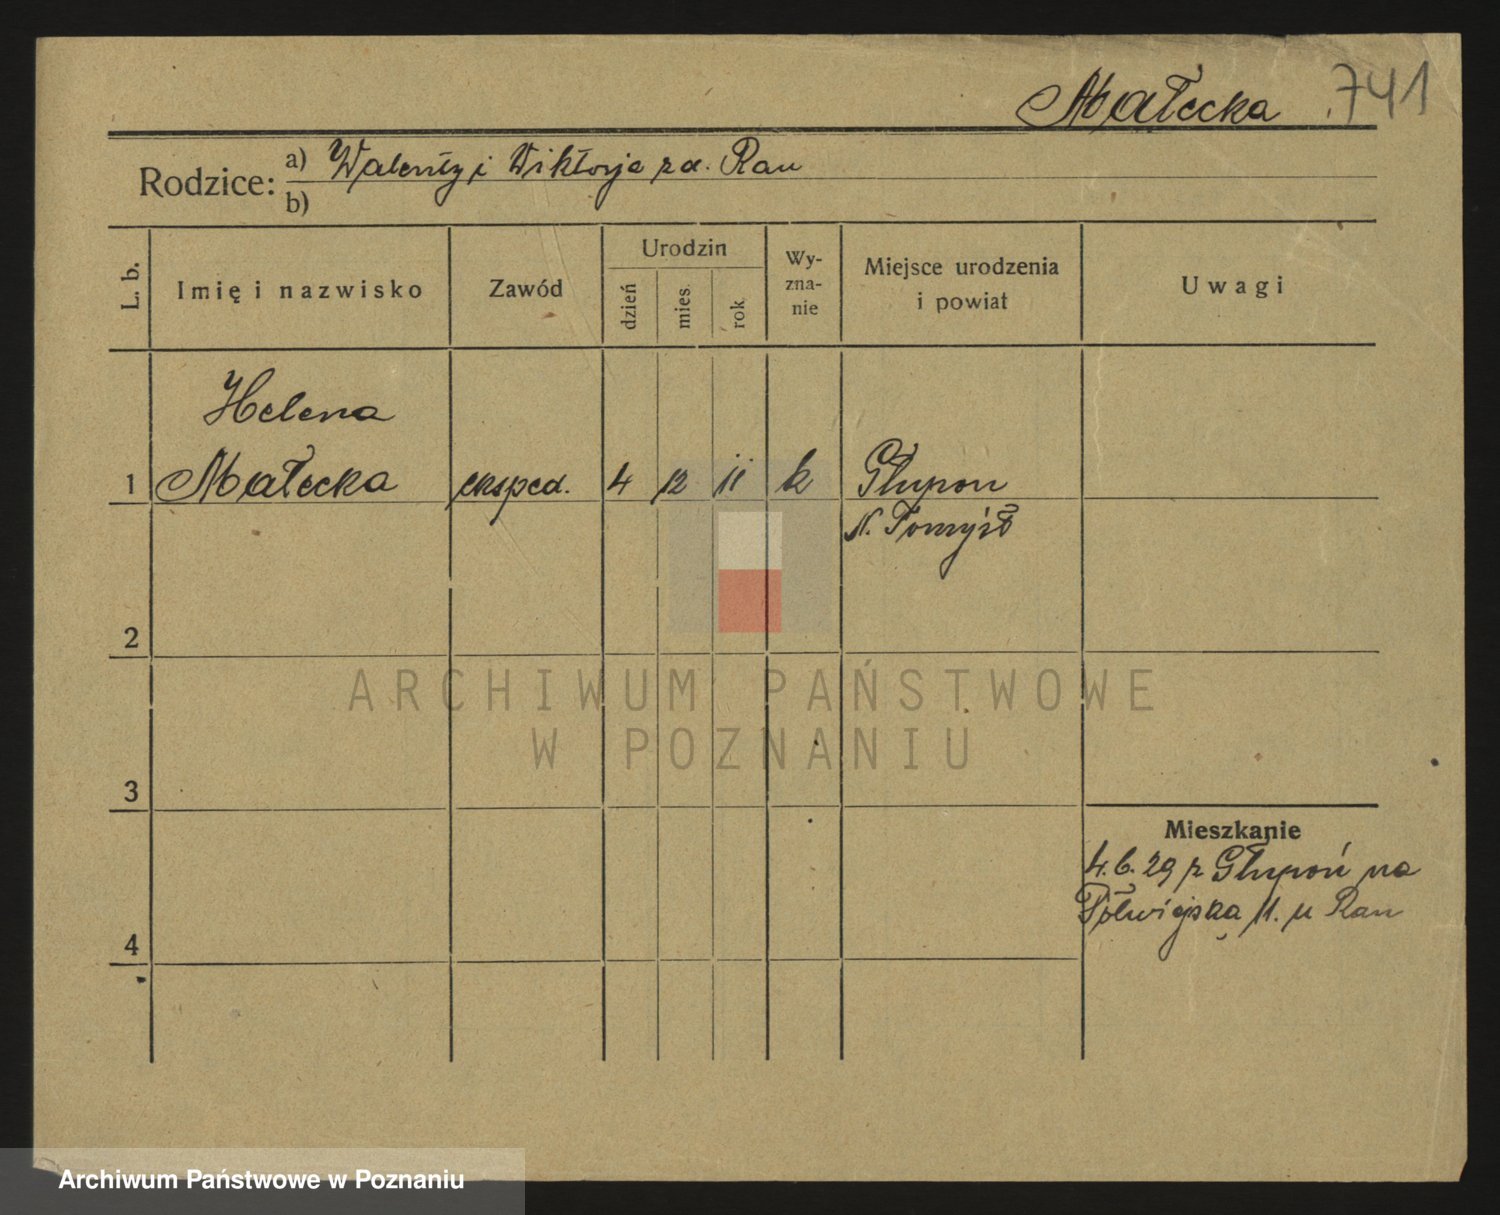 Małecka 741
Rodzice: a) Walenty i Wiktorja zd. Rau
b)
L. b.
Imię i nazwisko
Zawód
Urodzin
dzień
mies.
rok
Wy-
zna-
nie
Miejsce urodzenia
i powiat
Uwagi
Helena
1 Małecka eksped. 4 12 11 k Głupoń
N. Tomyśl
2
3
4
Mieszkanie
4.6.29 z Głupoń na
Półwiejska 11. u Rau
ARCHIWUM PAŃSTWOWE
W POZNANIU
Archiwum Państwowe w Poznaniu